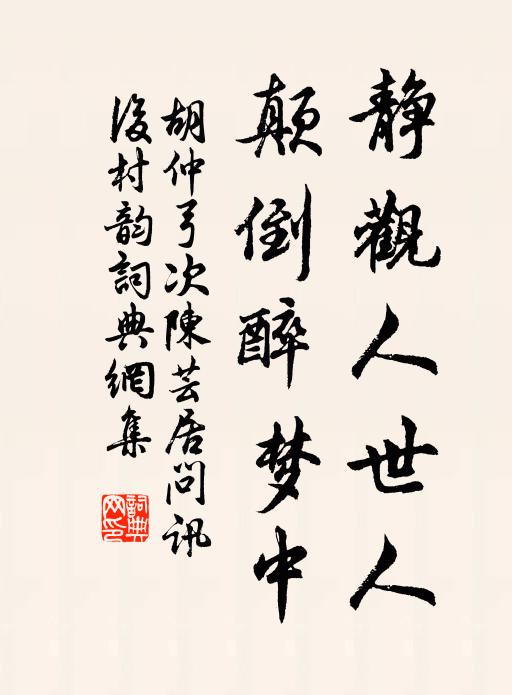 静觀人世人
颠倒醉梦中
胡仲弓次陳芸居問訊
後村韵詞典網集
詞典
网印